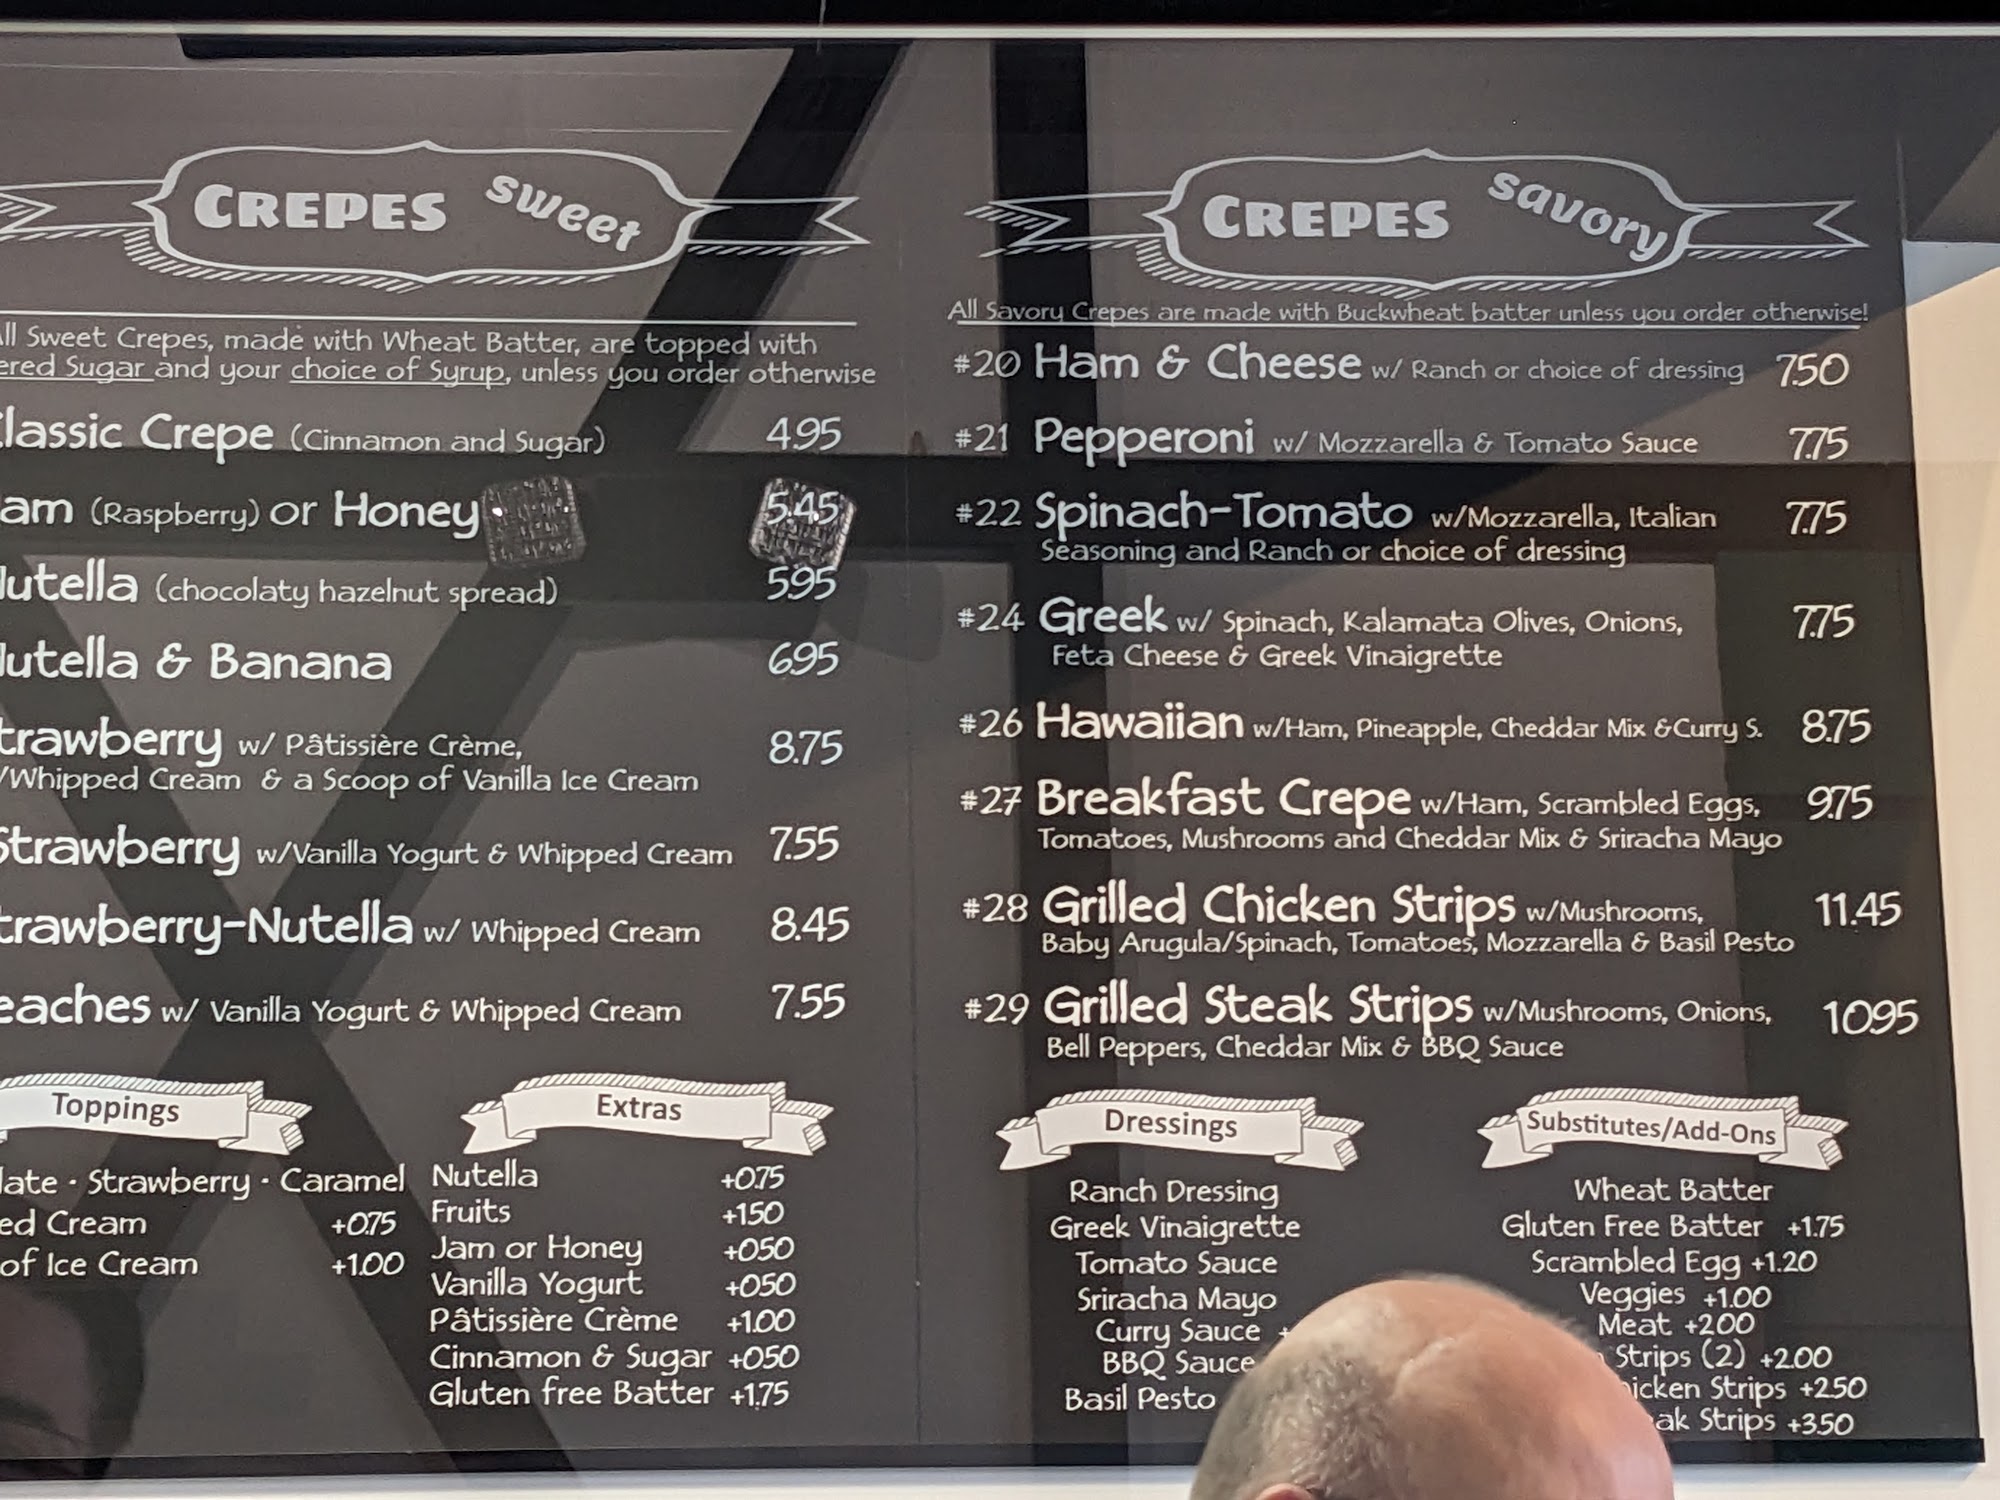 CREPES sweet
ll Sweet Crepes, made with Wheat Batter, are topped with
ered Sugar and your choice of Syrup, unless you order otherwise
lassic Crepe (Cinnamon and Sugar) 4.95
am (Raspberry) or Honey 5.45
utella (chocolaty hazelnut spread) 5.95
utella & Banana 6.95
trawberry w/ Pâtissière Crème, 8.75
/Whipped Cream & a Scoop of Vanilla Ice Cream
Strawberry w/Vanilla Yogurt & Whipped Cream 7.55
trawberry-Nutella w/ Whipped Cream 8.45
eaches w/ Vanilla Yogurt & Whipped Cream 7.55
Toppings
late · Strawberry · Caramel
ed Cream +0.75
of Ice Cream +1.00
Extras
Nutella +0.75
Fruits +1.50
Jam or Honey +0.50
Vanilla Yogurt +0.50
Pâtissière Crème +1.00
Cinnamon & Sugar +0.50
Gluten free Batter +1.75
CREPES savory
All Savory Crepes are made with Buckwheat batter unless you order otherwise!
#20 Ham & Cheese w/ Ranch or choice of dressing 7.50
#21 Pepperoni w/ Mozzarella & Tomato Sauce 7.75
#22 Spinach-Tomato w/Mozzarella, Italian 7.75
Seasoning and Ranch or choice of dressing
#24 Greek w/ Spinach, Kalamata Olives, Onions, 7.75
Feta Cheese & Greek Vinaigrette
#26 Hawaiian w/Ham, Pineapple, Cheddar Mix &Curry S. 8.75
#27 Breakfast Crepe w/Ham, Scrambled Eggs, 9.75
Tomatoes, Mushrooms and Cheddar Mix & Sriracha Mayo
#28 Grilled Chicken Strips w/Mushrooms, 11.45
Baby Arugula/Spinach, Tomatoes, Mozzarella & Basil Pesto
#29 Grilled Steak Strips w/Mushrooms, Onions, 10.95
Bell Peppers, Cheddar Mix & BBQ Sauce
Dressings
Ranch Dressing
Greek Vinaigrette
Tomato Sauce
Sriracha Mayo
Curry Sauce
BBQ Sauce
Basil Pesto
Substitutes/Add-Ons
Wheat Batter
Gluten Free Batter +1.75
Scrambled Egg +1.20
Veggies +1.00
Meat +2.00
Strips (2) +2.00
icken Strips +2.50
ak Strips +3.50